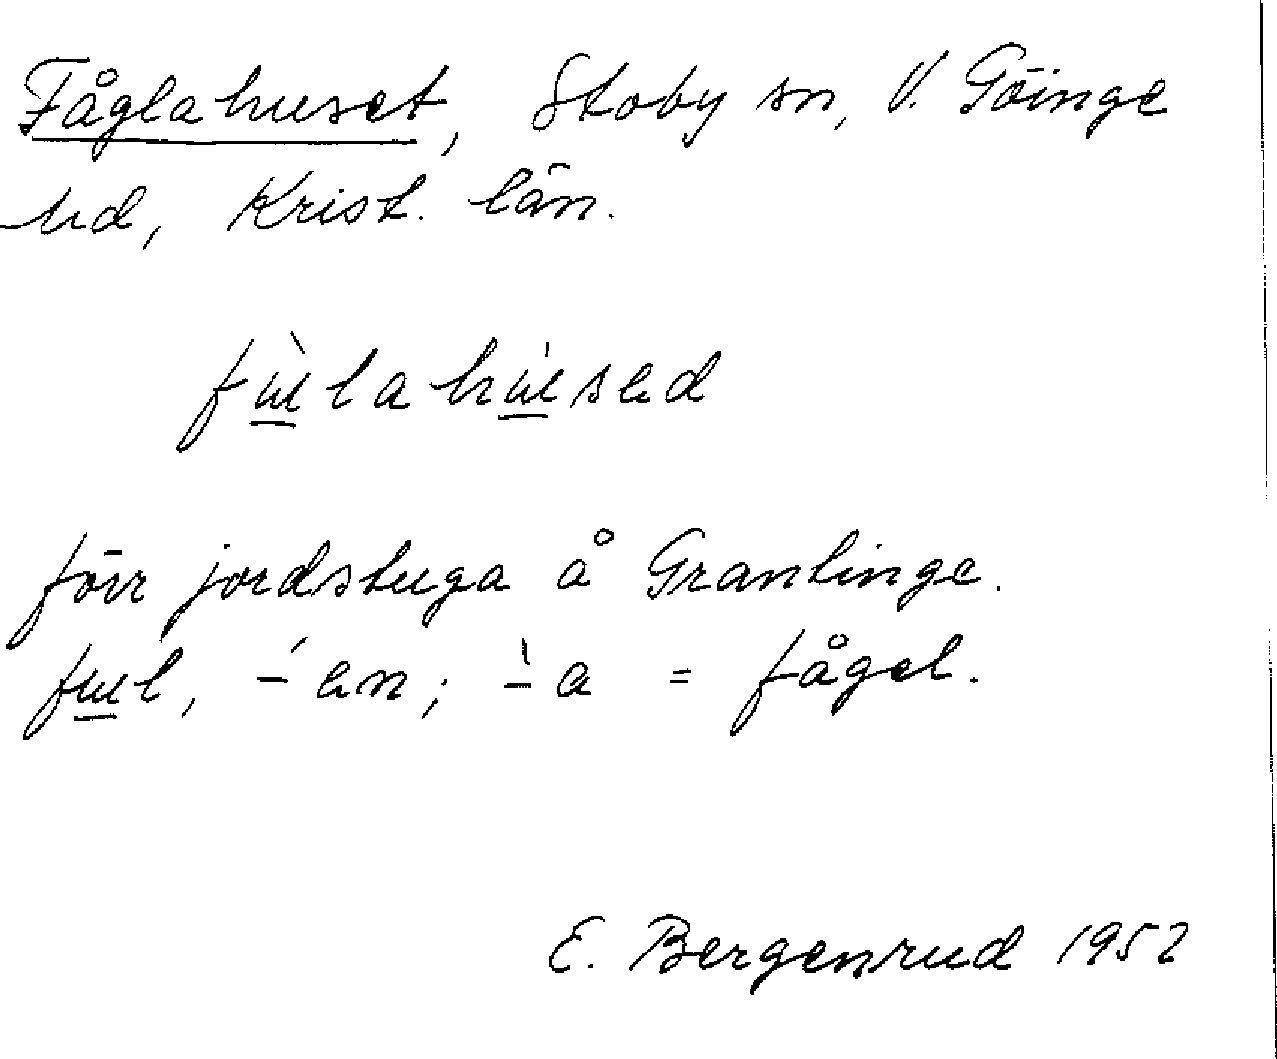 Fåglahuset, Stoby sn, V. Göinge
hd, Krist. län.
fɯ̲̀lahɯ̲́sed
förr jordstuga å Grantinge.
fɯ̲l, –́en; –̀a = fågel.
E. Bergenrud 1952